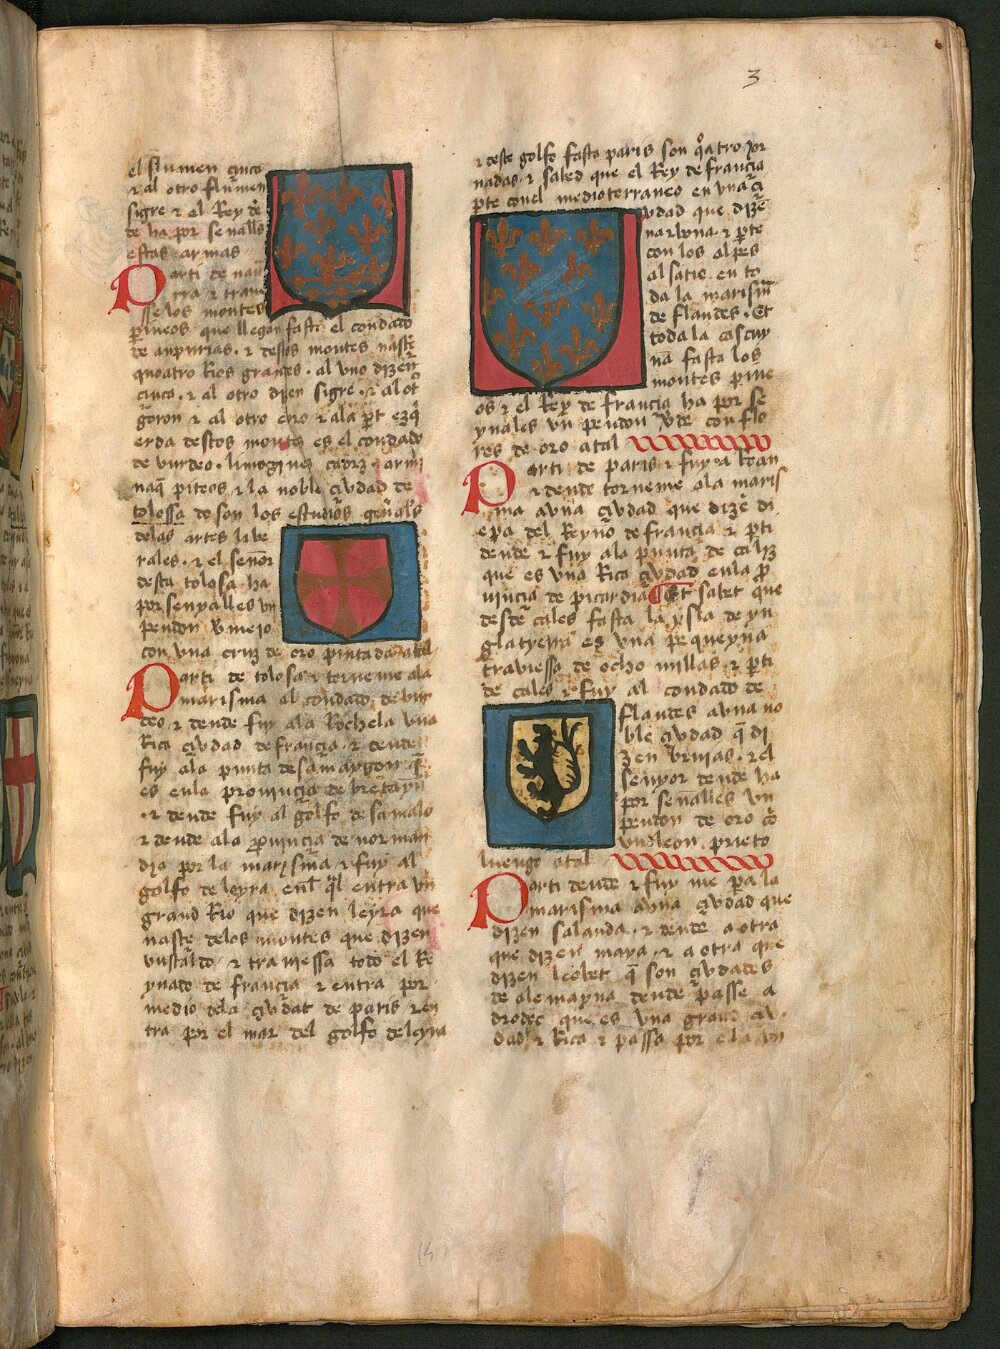 3
el flumen cinca
⁊ al otro flumen
sigre ⁊ el Rey de
de ha por señalls
estas armas
Parti de nau
rra ⁊ traue
sse los montes
perineos que llegan fasta el condado
de anpurias ⁊ destos montes nasçen
quoatro Rios grandes. al vno dizen
cinca. ⁊ al otro dizen sigre. ⁊ al ot
goron ⁊ al otro ero ⁊ ala part ezqi
erda destos montes es el condado
de burdeo. limogines
naq piteos ⁊ la noble çiudad de
tolossa do son los estudios generals
delas artes labe
rales. ⁊ el señor
desta tolosa ha
por senyalles vn
pendon vmejo
con vna cruz de oro pintada atal
Parti de tolosa ⁊ torneme ala
marisma al condado de bur
deo ⁊ dende fuy ala Rochela vna
Rica çiudad de françia ⁊ dende
fuy ala punta de samaygon q
es enla prouinçia de bretayn
⁊ dende fuy al golfo de samalo
⁊ dende ala prouinçia de norman
dia por la marisma ⁊ fuy al
golfo de leyra enl ql entra vn
grand Rio que dizen leyra que
nasce delos montes que dizen
⁊ trauiessa todo el Re
ynado de françia ⁊ entra por
medio dela çiudat de paris ⁊ en
tra por el mar del golfo de leyra
⁊ deste golfo fasta paris son qatro jor
nadas. ⁊ sabed que el Rey de françia
pte conel medioterraneo en vna çi
udad que dize
narbona. ⁊ pte
con los alpes
al satie. en to
da la marism
de flandes. Et
toda la gascuy
na fasta los
montes perine
os ⁊ el Rey de françia ha por se
ynales vn pendon vde con flo
res de oro atal
Parti de paris ⁊ fuy a Roan
⁊ dende torneme ala maris
ma a vna çiudad que dize di
epa del Reyno de françia ⁊ pti
dende ⁊ fuy ala punta de cales
que es vna Rica çiudad enla p
uinçia de picardia Et sabet que
desde cales fasta la ysla de yn
glatera es vna pequeyna
trauiessa de ocho millas ⁊ pti
de cales ⁊ fuy al condado de
flandes a vna no
ble çiudad q di
zen brujas. ⁊ el
senyor dende ha
por señalles vn
pendon de oro co
vn leon prieto
luengo atal
Parti dende ⁊ fuy me pa la
marisma a vna çiudad que
dizen salanda. ⁊ dende a otra
que dizen maya ⁊ a otra que
dizen leobet q son çiudades
de alemayna dende passe a
drodec que es vna grand çiu
dad ⁊ Rica ⁊ passa por ella vn